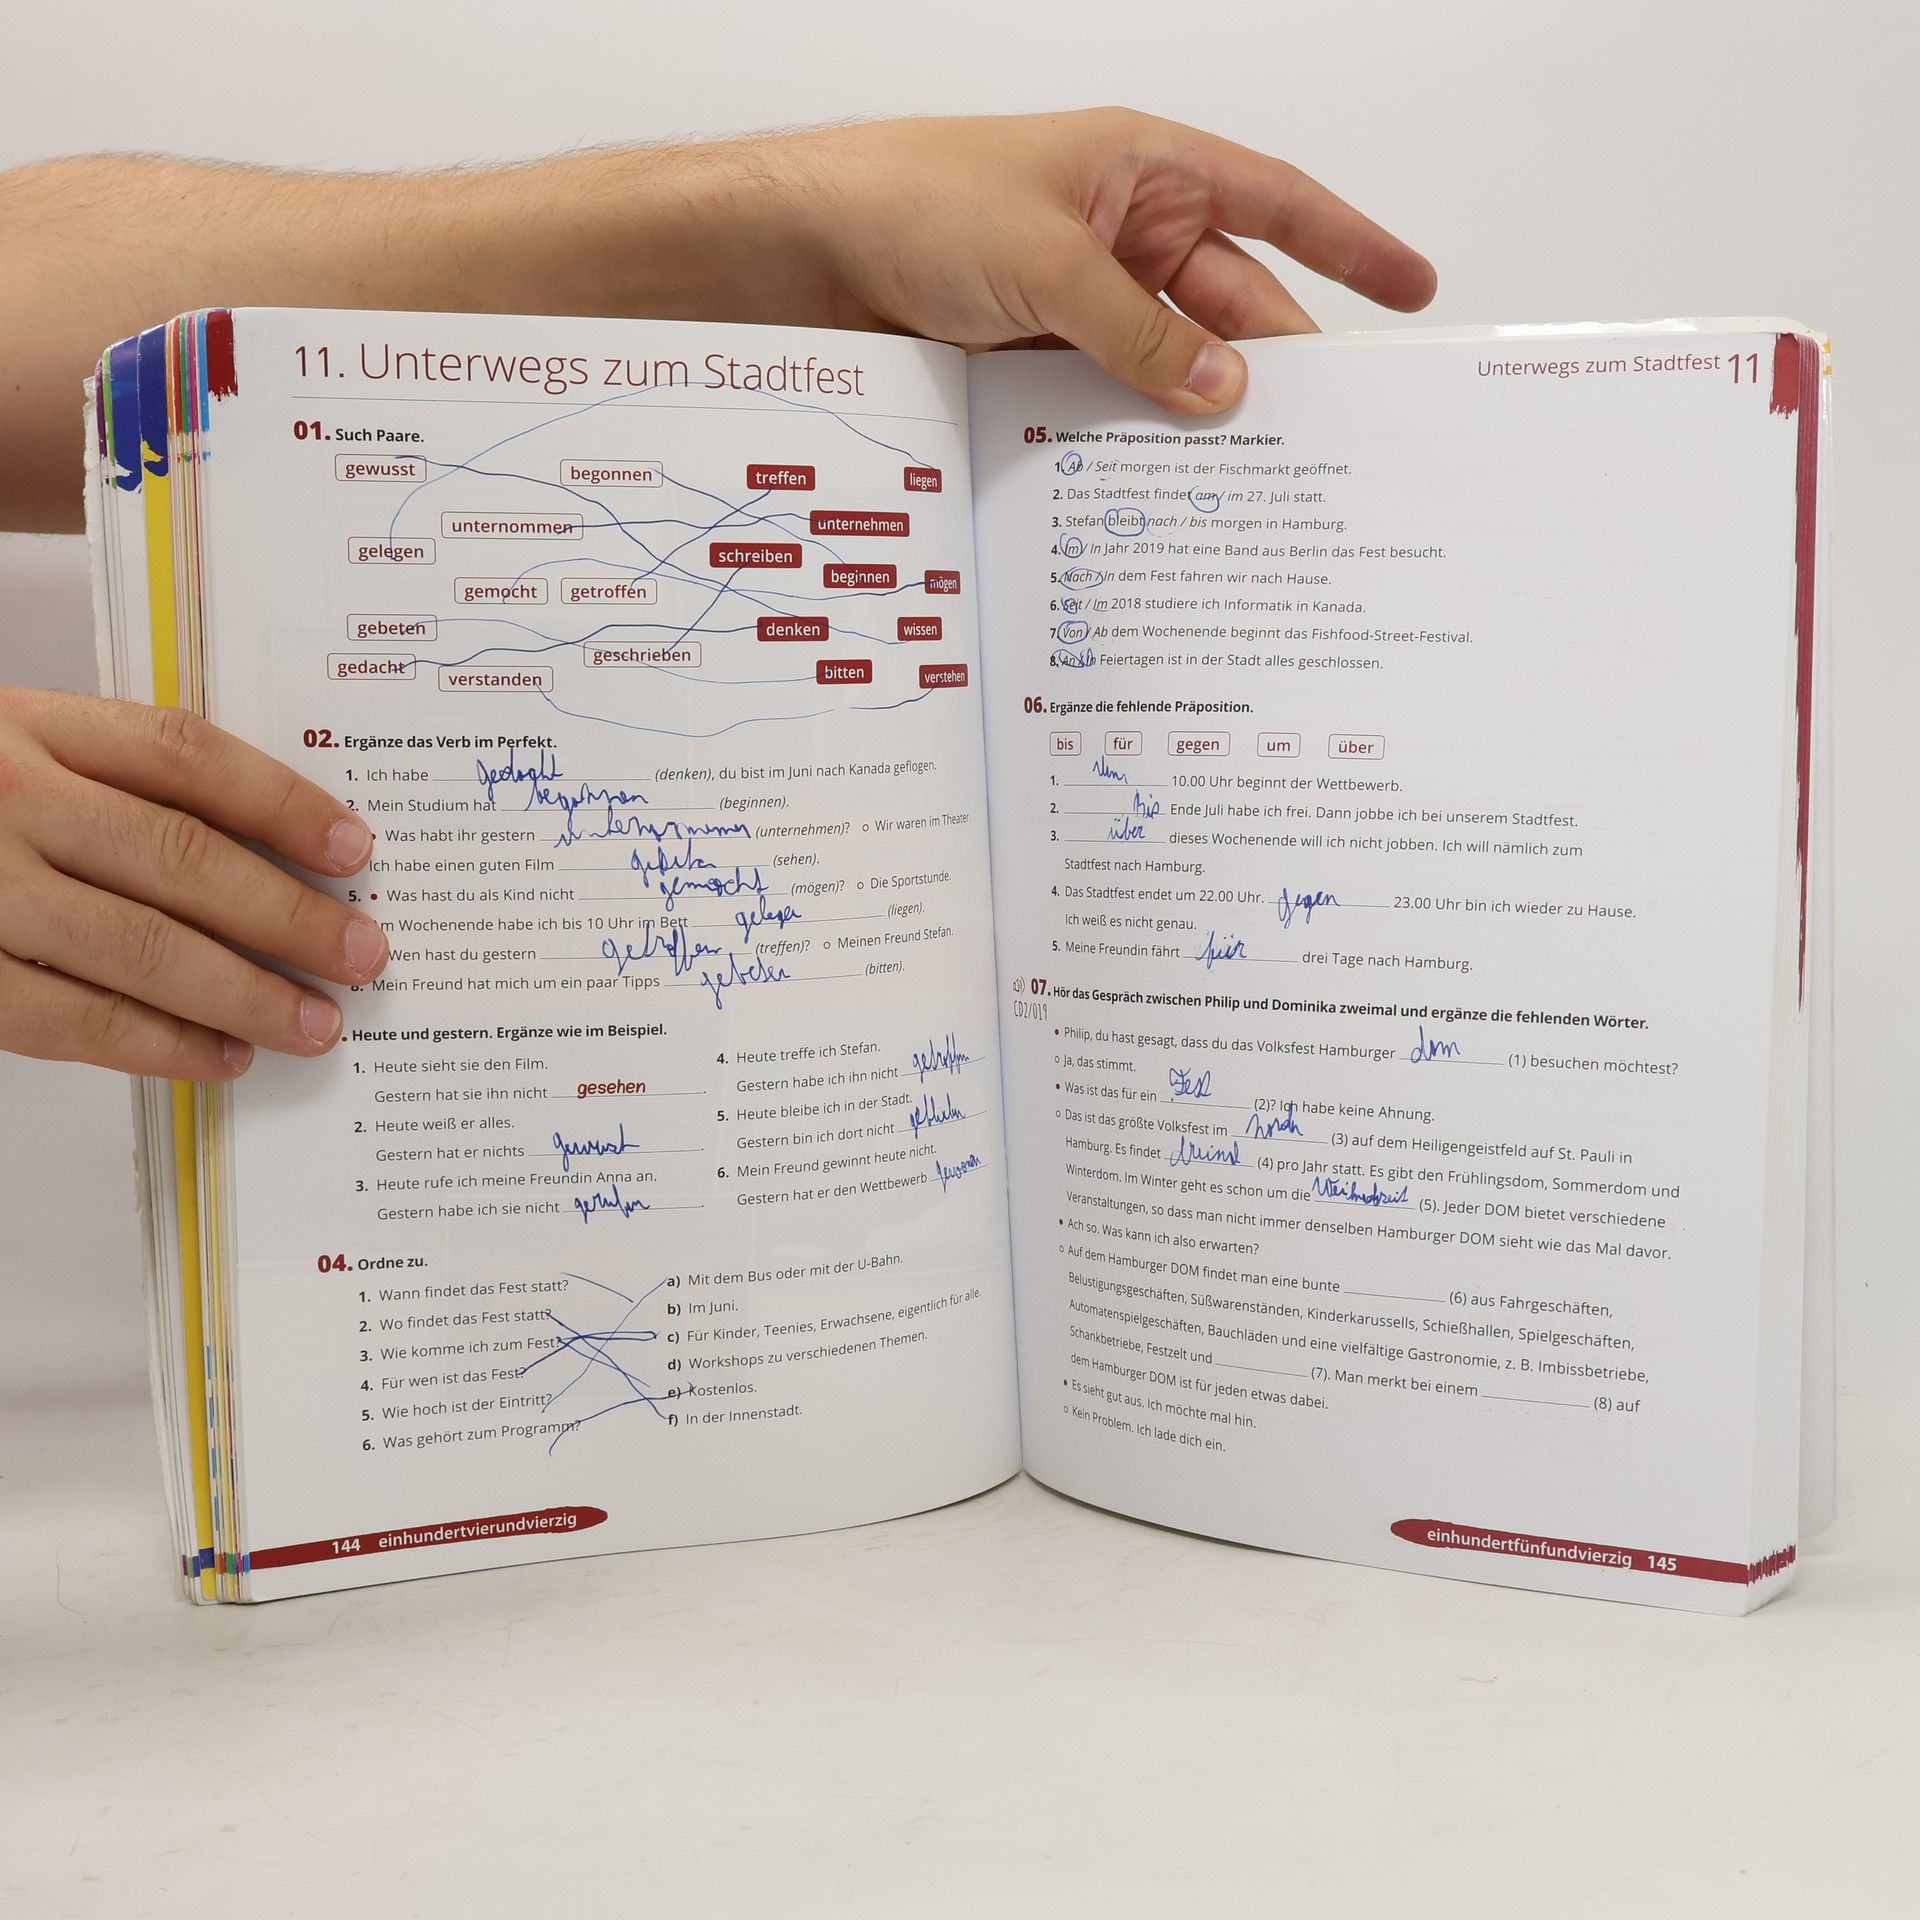 11. Unterwegs zum Stadtfest
01. Such Paare.
gewusst
begonnen
treffen
liegen
unternommen
unternehmen
gelegen
schreiben
beginnen
mögen
gemocht
getroffen
gebeten
denken
wissen
gedacht
geschrieben
verstanden
bitten
verstehen
02. Ergänze das Verb im Perfekt.
1. Ich habe gedacht (denken), du bist im Juni nach Kanada geflogen.
2. Mein Studium hat begonnen (beginnen).
• Was habt ihr gestern unternommen (unternehmen)? ○ Wir waren im Theater.
Ich habe einen guten Film (sehen).
5. • Was hast du als Kind nicht gemocht (mögen)? ○ Die Sportstunde.
m Wochenende habe ich bis 10 Uhr im Bett gelegen (liegen).
Wen hast du gestern getroffen (treffen)? ○ Meinen Freund Stefan.
8. Mein Freund hat mich um ein paar Tipps gebeten (bitten).
. Heute und gestern. Ergänze wie im Beispiel.
1. Heute sieht sie den Film.
Gestern hat sie ihn nicht gesehen.
2. Heute weiß er alles.
Gestern hat er nichts gewusst.
3. Heute rufe ich meine Freundin Anna an.
Gestern habe ich sie nicht gerufen.
4. Heute treffe ich Stefan.
Gestern habe ich ihn nicht getroffen
5. Heute bleibe ich in der Stadt.
Gestern bin ich dort nicht geblieben
6. Mein Freund gewinnt heute nicht.
Gestern hat er den Wettbewerb
04. Ordne zu.
1. Wann findet das Fest statt?
2. Wo findet das Fest statt?
3. Wie komme ich zum Fest?
4. Für wen ist das Fest?
5. Wie hoch ist der Eintritt?
6. Was gehört zum Programm?
a) Mit dem Bus oder mit der U-Bahn.
b) Im Juni.
c) Für Kinder, Teenies, Erwachsene, eigentlich für alle.
d) Workshops zu verschiedenen Themen.
e) Kostenlos.
f) In der Innenstadt.
144 einhundertvierundvierzig
Unterwegs zum Stadtfest 11
05. Welche Präposition passt? Markier.
1. Ab / Seit morgen ist der Fischmarkt geöffnet.
2. Das Stadtfest findet am / im 27. Juli statt.
3. Stefan bleibt nach / bis morgen in Hamburg.
4. Im / In Jahr 2019 hat eine Band aus Berlin das Fest besucht.
5. Nach / In dem Fest fahren wir nach Hause.
6. Seit / Im 2018 studiere ich Informatik in Kanada.
7. Von / Ab dem Wochenende beginnt das Fishfood-Street-Festival.
8. An / In Feiertagen ist in der Stadt alles geschlossen.
06. Ergänze die fehlende Präposition.
bis für gegen um über
1. Um 10.00 Uhr beginnt der Wettbewerb.
2. bis Ende Juli habe ich frei. Dann jobbe ich bei unserem Stadtfest.
3. über dieses Wochenende will ich nicht jobben. Ich will nämlich zum
Stadtfest nach Hamburg.
4. Das Stadtfest endet um 22.00 Uhr. gegen 23.00 Uhr bin ich wieder zu Hause.
Ich weiß es nicht genau.
5. Meine Freundin fährt für drei Tage nach Hamburg.
CD2/019
07. Hör das Gespräch zwischen Philip und Dominika zweimal und ergänze die fehlenden Wörter.
• Philip, du hast gesagt, dass du das Volksfest Hamburger dom (1) besuchen möchtest?
○ Ja, das stimmt.
• Was ist das für ein Fest (2)? Ich habe keine Ahnung.
○ Das ist das größte Volksfest im (3) auf dem Heiligengeistfeld auf St. Pauli in
Hamburg. Es findet dreimal (4) pro Jahr statt. Es gibt den Frühlingsdom, Sommerdom und
Winterdom. Im Winter geht es schon um die (5). Jeder DOM bietet verschiedene
Veranstaltungen, so dass man nicht immer denselben Hamburger DOM sieht wie das Mal davor.
• Ach so. Was kann ich also erwarten?
○ Auf dem Hamburger DOM findet man eine bunte (6) aus Fahrgeschäften,
Belustigungsgeschäften, Süßwarenständen, Kinderkarussells, Schießhallen, Spielgeschäften,
Automatenspielgeschäften, Bauchläden und eine vielfältige Gastronomie, z. B. Imbissbetriebe,
Schankbetriebe, Festzelt und (7). Man merkt bei einem (8) auf
dem Hamburger DOM ist für jeden etwas dabei.
• Es sieht gut aus. Ich möchte mal hin.
○ Kein Problem. Ich lade dich ein.
einhundertfünfundvierzig 145